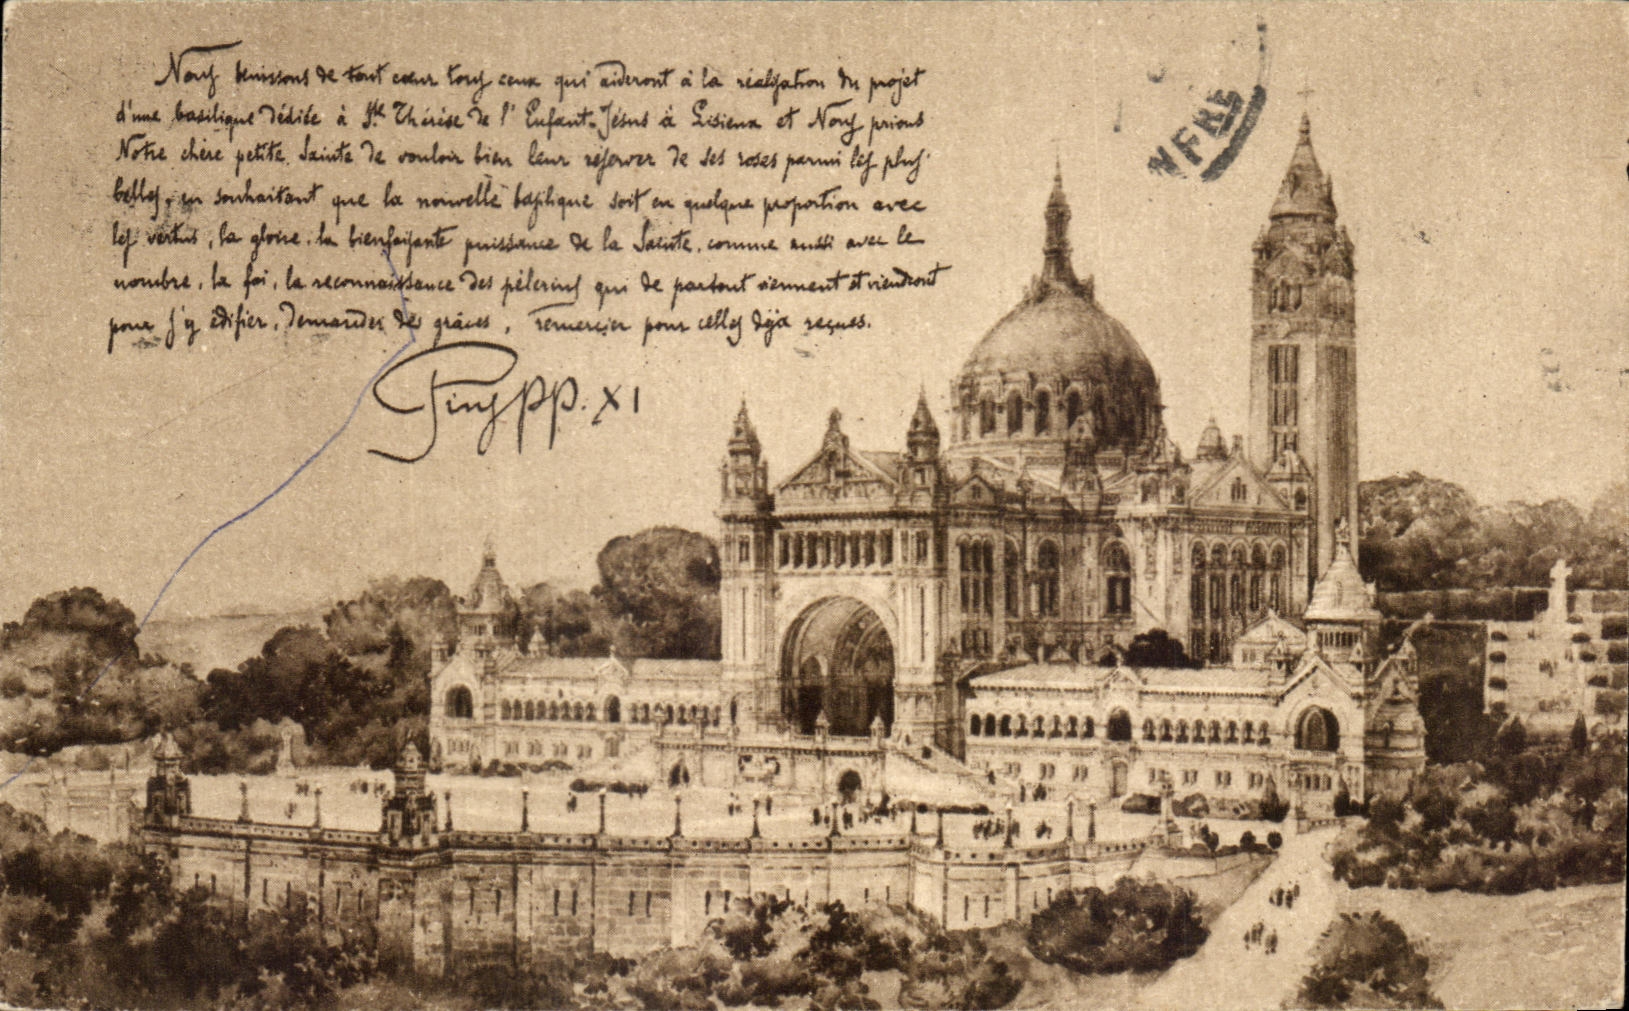 Nous bénissons de tout cœur tous ceux qui aideront à la réalisation du projet
d'une basilique dédiée à Ste Thérèse de l'Enfant-Jésus à Lisieux et Nous prions
Notre chère petite Sainte de vouloir bien leur réserver de ses roses parmi les plus
belles, en souhaitant que la nouvelle basilique soit en quelque proportion avec
les vertus, la gloire, la bienfaisante puissance de la Sainte, comme aussi avec le
nombre, la foi, la reconnaissance des pèlerins qui de partout viennent et viendront
pour s'y édifier, demander des grâces, remercier pour celles déjà reçues.
Pius PP. XI